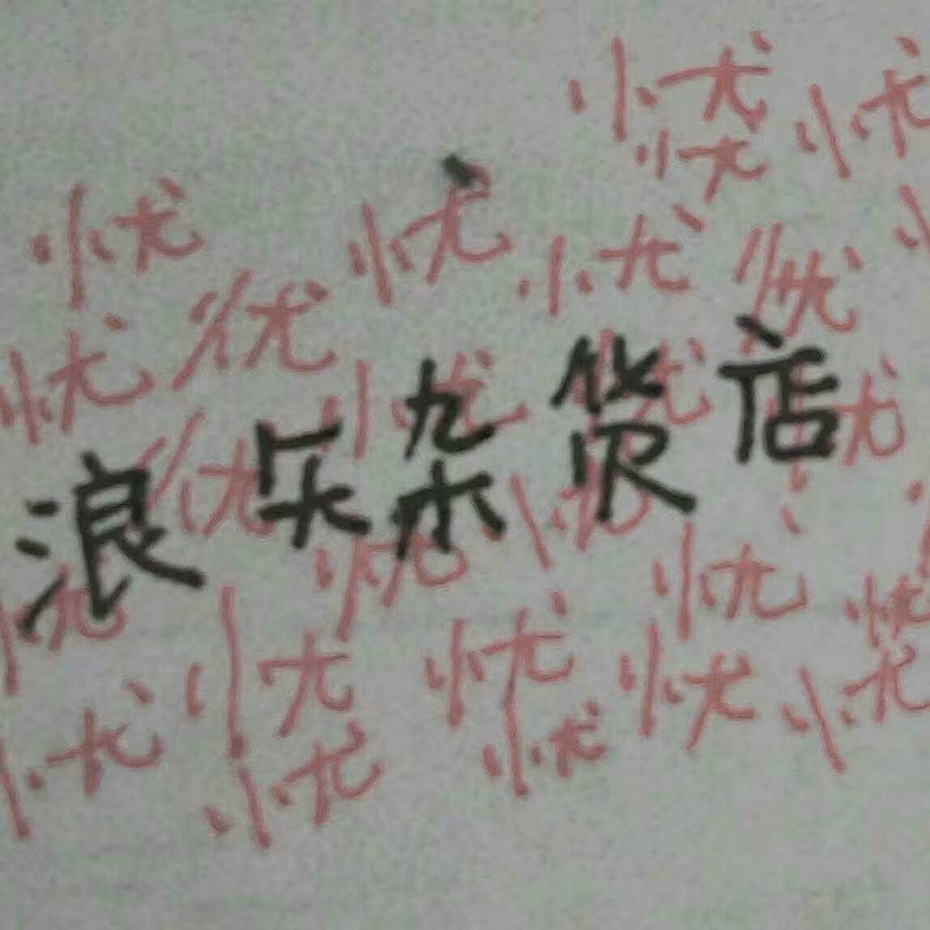 忧 忧
忧
忧 忧 忧 忧
忧 忧
忧 忧 忧
浪矢杂货店
忧 忧
忧 忧 忧
忧 忧
忧 忧 忧 忧
忧 忧 忧